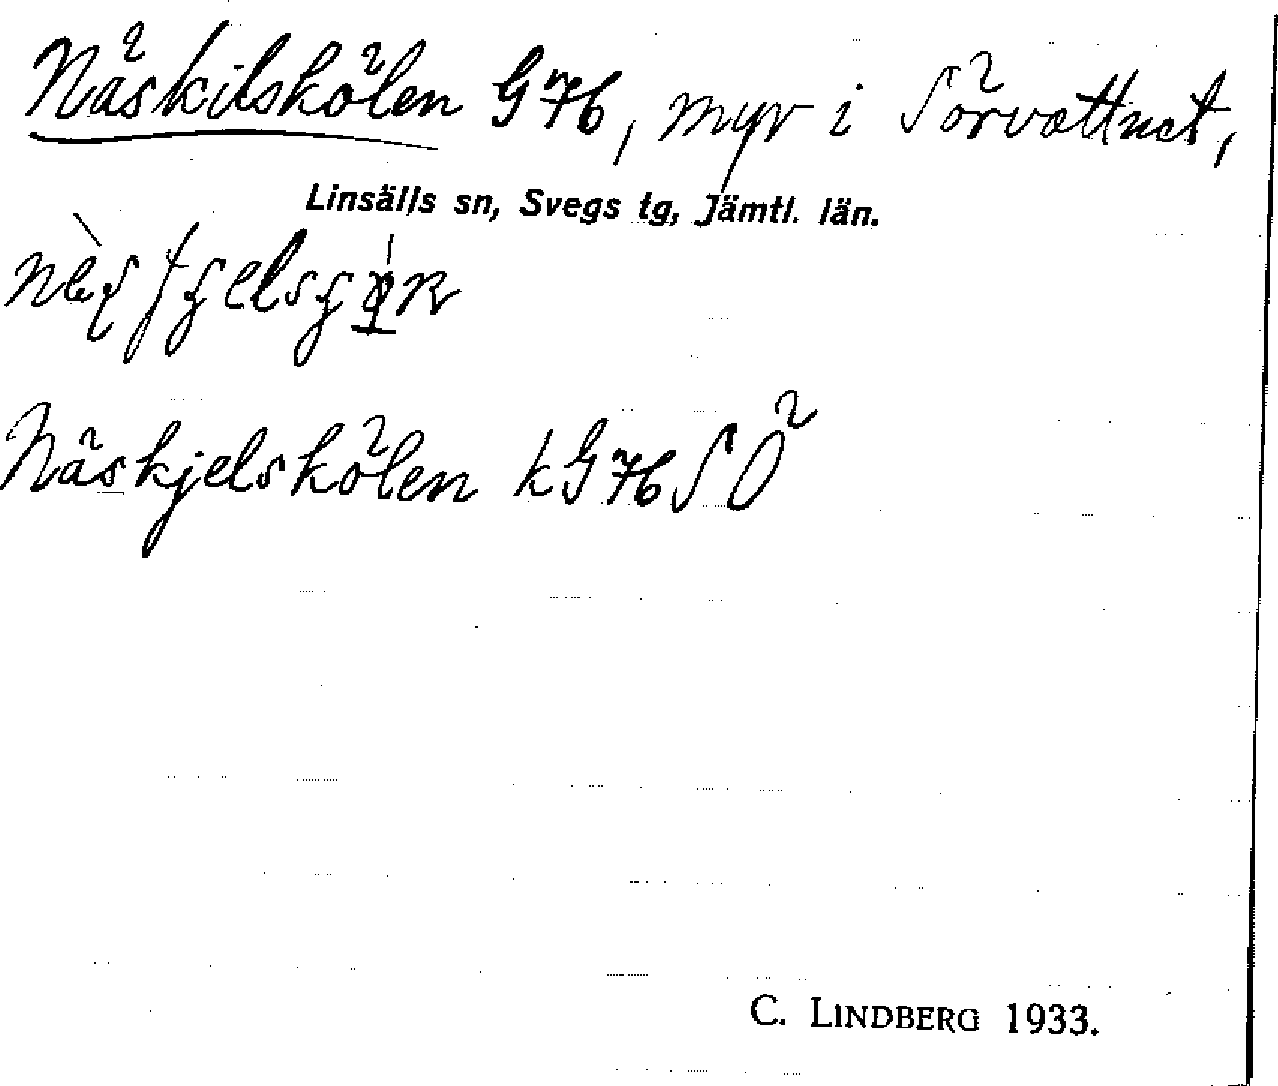 Näskilskölen G76, myr i Sörvattnet,
Linsälls sn, Svegs tg, Jämtl. län.
Näskjelskölen kG76SÖ
C. LINDBERG 1933.